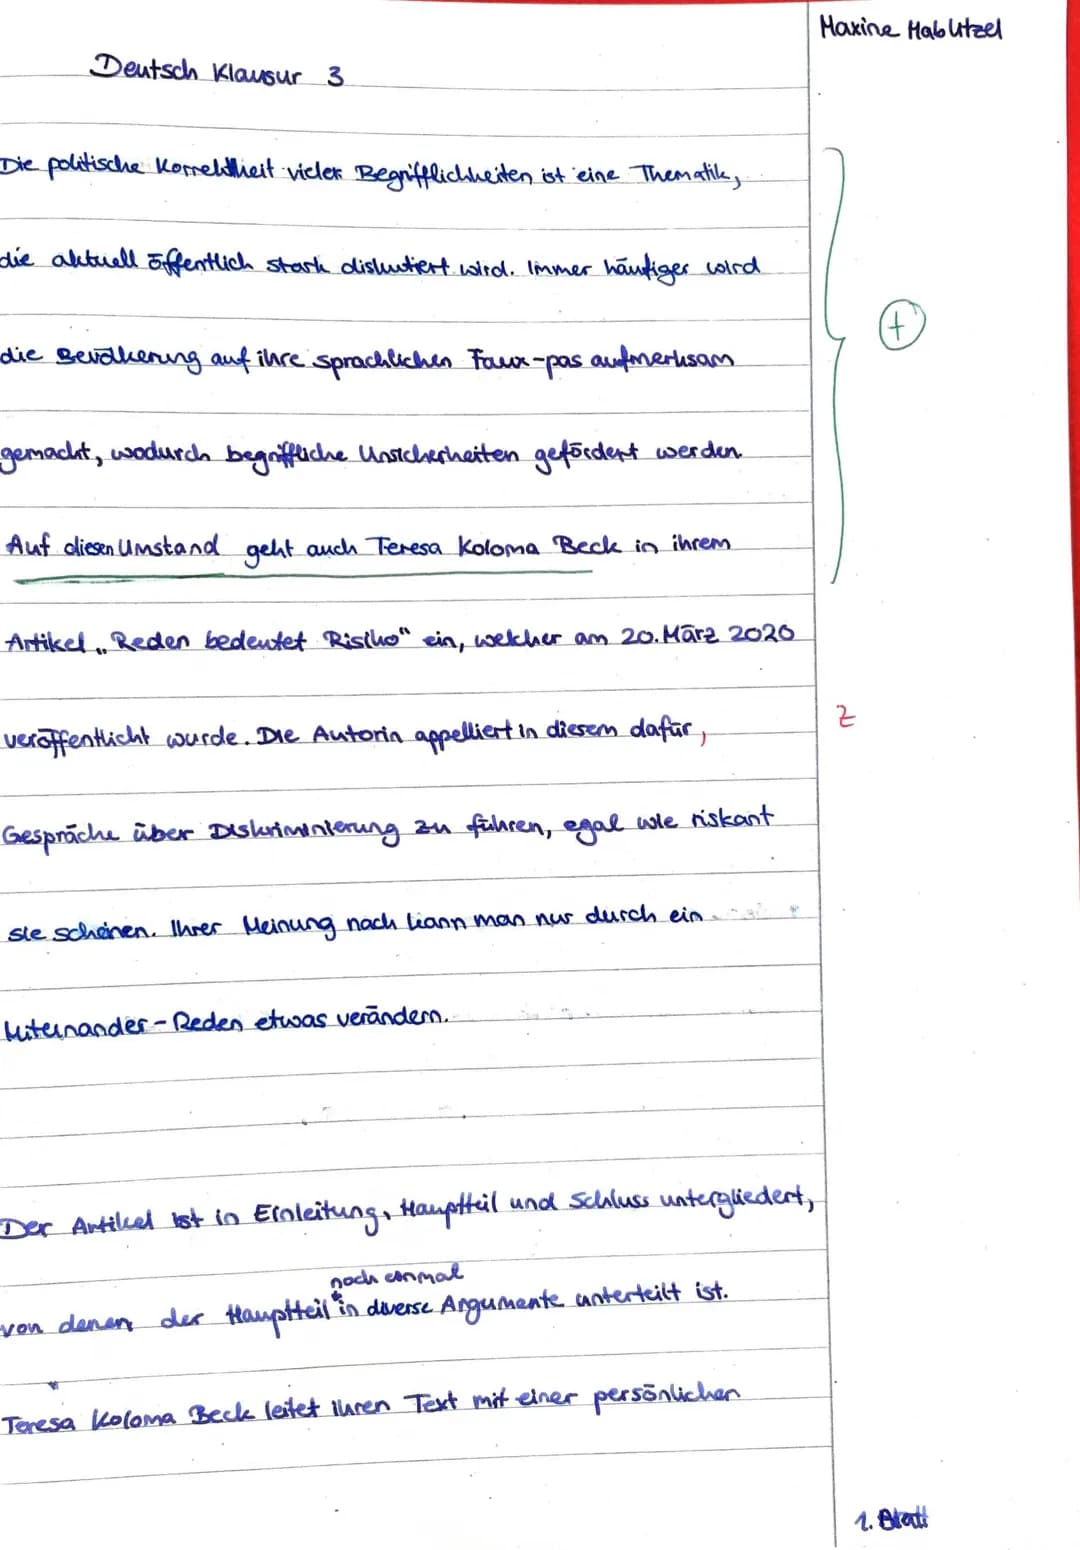 Maxine Hablützel
Deutsch Klausur 3
Die politische Korrektheit vieler Begrifflichkeiten ist eine Thematik,
die aktuell öffentlich stark diskutiert wird. Immer häufiger wird
die Bevölkerung auf ihre sprachlichen Faux-pas aufmerksam
+
gemacht, wodurch begriffliche Unsicherheiten gefördert werden.
Auf diesen Umstand geht auch Teresa Koloma Beck in ihrem
Artikel „Reden bedeutet Risiko" ein, welcher am 20. März 2020
veröffentlicht wurde. Die Autorin appelliert in diesem dafür,
Z
Gespräche über Diskriminierung zu führen, egal wie riskant
sie scheinen. Ihrer Meinung nach kann man nur durch ein
Miteinander-Reden etwas verändern.
Der Artikel ist in Einleitung, Hauptteil und Schluss untergliedert,
noch einmal
von denen der Hauptteil in diverse Argumente unterteilt ist.
Teresa Koloma Beck leitet ihren Text mit einer persönlichen
1. Blatt